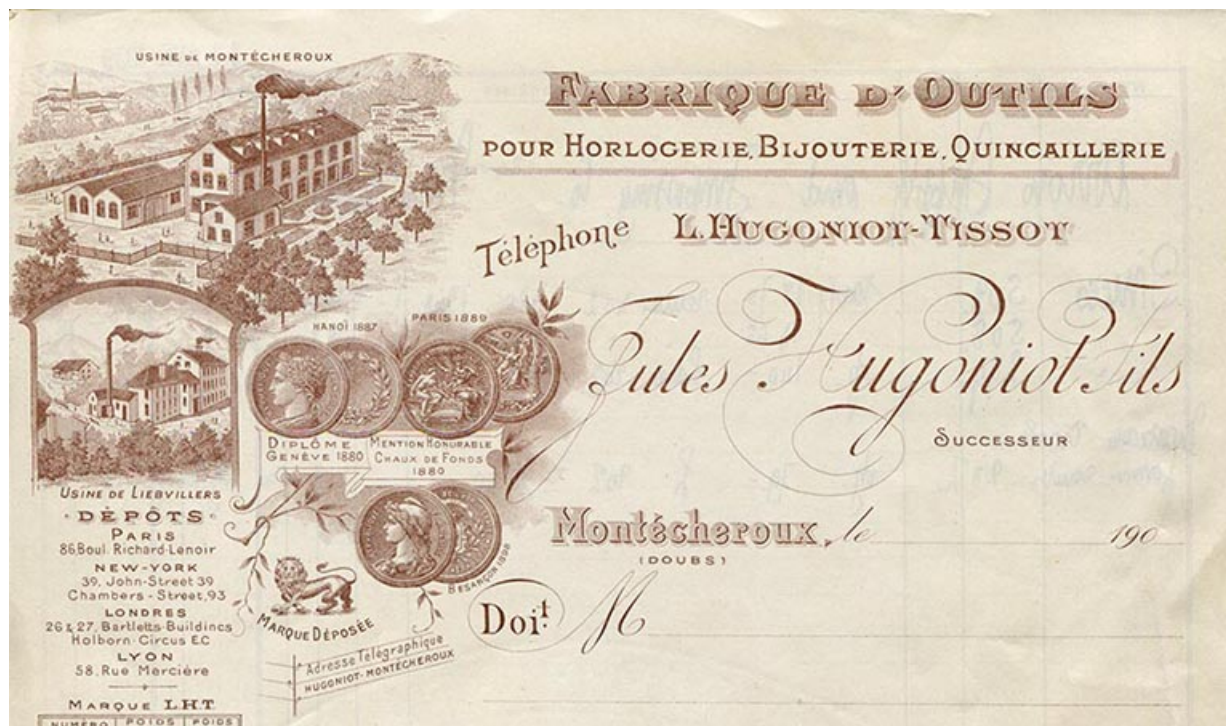 USINE DE MONTÉCHEROUX
FABRIQUE D'OUTILS
POUR HORLOGERIE, BIJOUTERIE, QUINCAILLERIE
Téléphone
L. HUGONIOT-TISSOT
Jules Hugoniot Fils
SUCCESSEUR
HANOÏ 1887
PARIS 1889
DIPLÔME
GENÈVE 1880
MENTION HONORABLE
CHAUX DE FONDS
1889
BESANÇON
MARQUE DÉPOSÉE
Adresse Télégraphique
HUGONIOT-MONTÉCHEROUX
USINE DE LIEBVILLERS
DÉPÔTS
PARIS
86 Boul. Richard-Lenoir
NEW-YORK
39, John-Street 39
Chambers-Street, 93
LONDRES
26 & 27, Bartletts-Buildings
Holborn-Circus EC
LYON
58, Rue Mercière
MARQUE L.H.T.
NUMÉRO POIDS POIDS
Montécheroux, le 190
(DOUBS)
Doit M